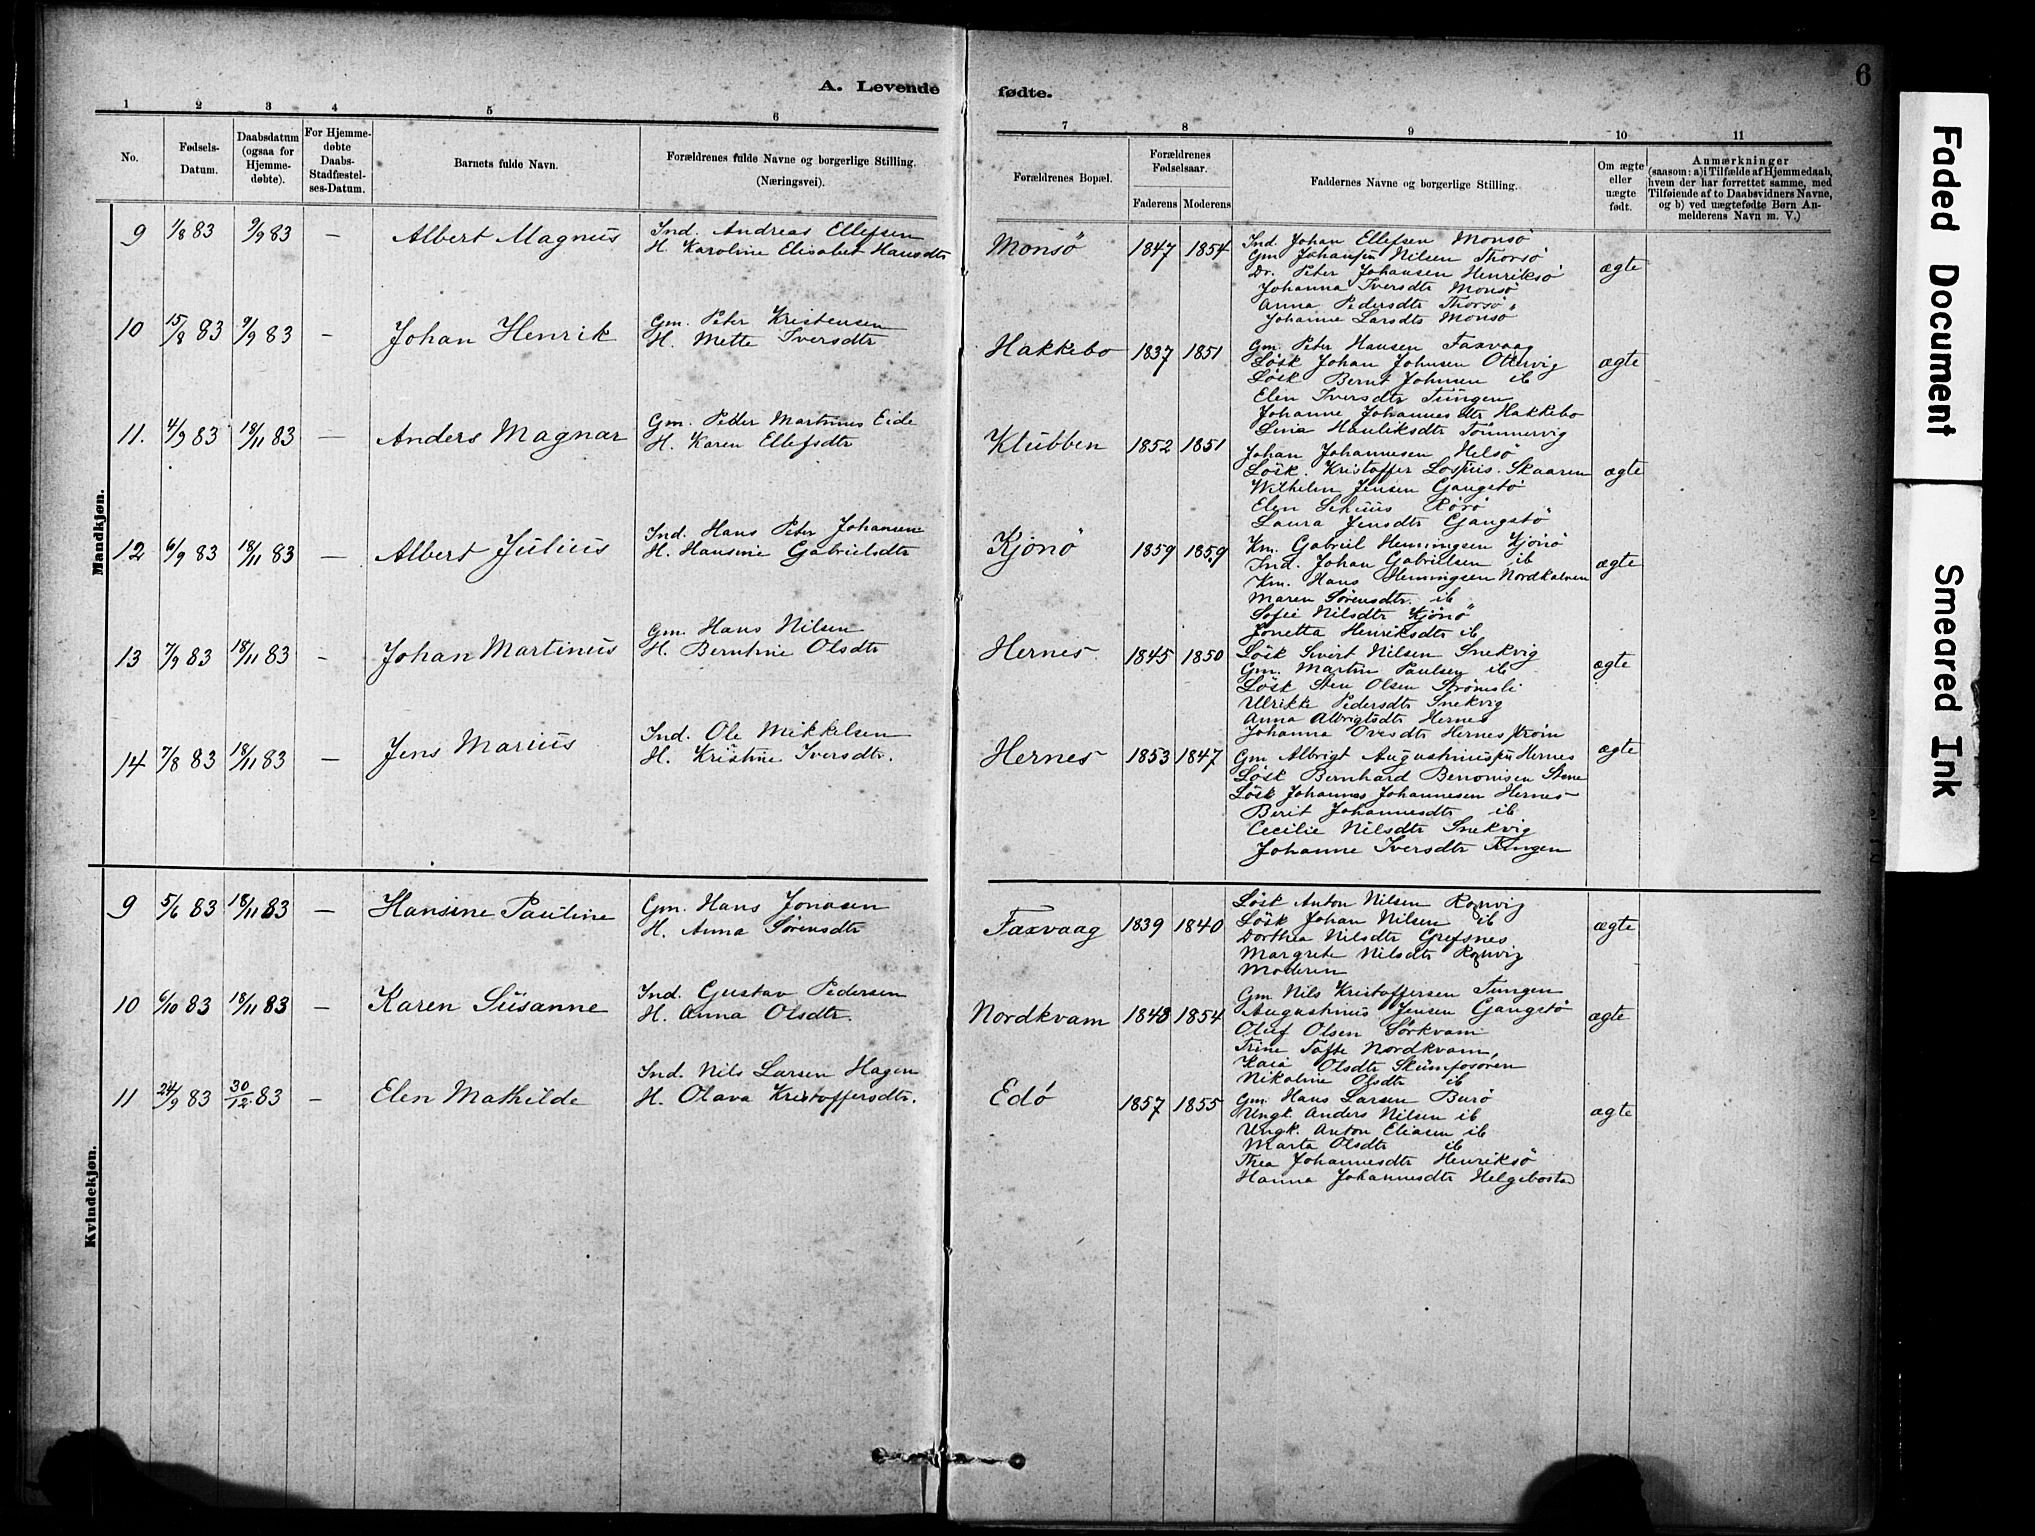 A. Levende fødte.
6
1 2 3 4 5 6 7 8 9 10 11
No.
Fødsels-Datum.
Daabsdatum (ogsaa for Hjemme-døbte).
For Hjemme-døbte Daabs-Stadfæstel-ses-Datum.
Barnets fulde Navn.
Forældrenes fulde Navne og borgerlige Stilling. (Næringsvei).
Forældrenes Bopæl.
Forældrenes Fødselsaar.
Faderens Moderens
Faddernes Navne og borgerlige Stilling.
Om ægte eller uægte født.
Anmærkninger
(saasom: a) i Tilfælde af Hjemmedaab,
hvem der har forrettet samme, med
Tilføiende af to Daabsvidners Navne,
og b) ved uægtefødte Børn An-
melderens Navn m. V.)
Mandkjøn.
9 1/8 83 9/9 83 — Albert Magnus
Ind. Andreas Ellefsen
H. Karoline Elisabet Hansdtr
Monsö 1847 1854
Ind. Johan Ellefsen Monsö
Gm Johan Nilsen Thorsö
Dr. Peter Johansen Henriksö
Johanna Iversdtr Monsö
Anna Pedersdtr Thorsö
Johanne Larsdtr Monsö
ægte
10 15/8 83 9/9 83 — Johan Henrik
Gm. Peter Kristensen
H. Mette Iversdtr
Hakkebo 1837 1851
Gm. Peter Hansen Faxvaag
Lösk Johan Johnsen Otervig
Lösk Bernt Johnsen ib
Elen Iversdtr Tungen
Johanne Johannesdtr Hakkebo
Lina Hauliksdtr Tömmervig
ægte
11. 4/9 83 18/11 83 — Anders Magnar
Gm. Petter Martinus Eide
H. Karen Ellefsdtr
Klubben 1852 1851
Johan Johannesen Helsö
Lösk. Kristoffer Skaaren
Wilhelm Jensen Gangstö
Elen Rörö
Laura Jensdtr Gangstö
ægte
12 6/9 83 18/11 83 — Albert Julius
Ind. Hans Peter Johansen
H. Hansine Gabrielsdtr
Kjönö 1859 1859
Km. Gabriel Henningsen Kjönö
Ind. Johan Gabrielsen ib
Km. Hans Henningsen Nordkalven
Maren Sörensdtr. ib
Sofie Nilsdtr Kjönö
Jonetta Henriksdtr ib
ægte
13 7/9 83 18/11 83 — Johan Martinus
Gm. Hans Nilsen
H. Berntine Olsdtr
Hernes. 1845 1850
Lösk Sivert Nilsen Snekvig
Gm. Martin Paulsen ib
Lösk Sten Olsen Strömsli
Ulrikke Pedersdtr Snekvig
Anna Albrigtsdtr Hernes
Johanna Ovesdtr Hernes
ægte
14 7/8 83 18/11 83 — Jens Marius
Ind. Ole Mikkelsen
H. Kristine Iversdtr.
Hernes 1853 1847
Gm Albrigt Augustinussen Hernes
Lösk Bernhard Benonisen Stene
Lösk Johannes Johannesen Hernes
Berit Johannesdtr ib
Cecilie Nilsdtr Snekvig
Johanne Iversdtr Tungen
ægte
Kvindekjøn.
9 5/6 83 18/11 83 — Hansine Pauline
Gm. Hans Jonasen
H. Anna Sörensdtr
Faxvaag 1839 1840
Lösk Anton Nilsen
Lösk Johan Nilsen ib
Dorthea Nilsdtr Grefsnes
Margrete Nilsdtr
Moderen
ægte
10 6/10 83 18/11 83 — Karen Susanne
Ind. Gustav Pedersen
H. Anna Olsdtr.
Nordkvam 1843 1854
Gm Nils Kristoffersen Tungen
Augustinus Jensen Gangstö
Oluf Olsen Sörkvam
Trine Töfte Nordkvam,
Kaia Olsdtr Skumfosören
Nikoline Olsdtr ib
ægte
11 24/9 83 30/12 83 — Elen Mathilde
Ind. Nils Larsen Hagen
H. Olava Kristoffersdtr.
Edö 1857 1855
Gm. Hans Larsen Burö
Ungk. Anders Nilsen ib
Ungk. Anton Eliasen ib
Marta Olsdtr ib
Thea Johannesdtr Henriksö
Hanna Johannesdtr Helgebostad
ægte
Faded Document
Smeared Ink